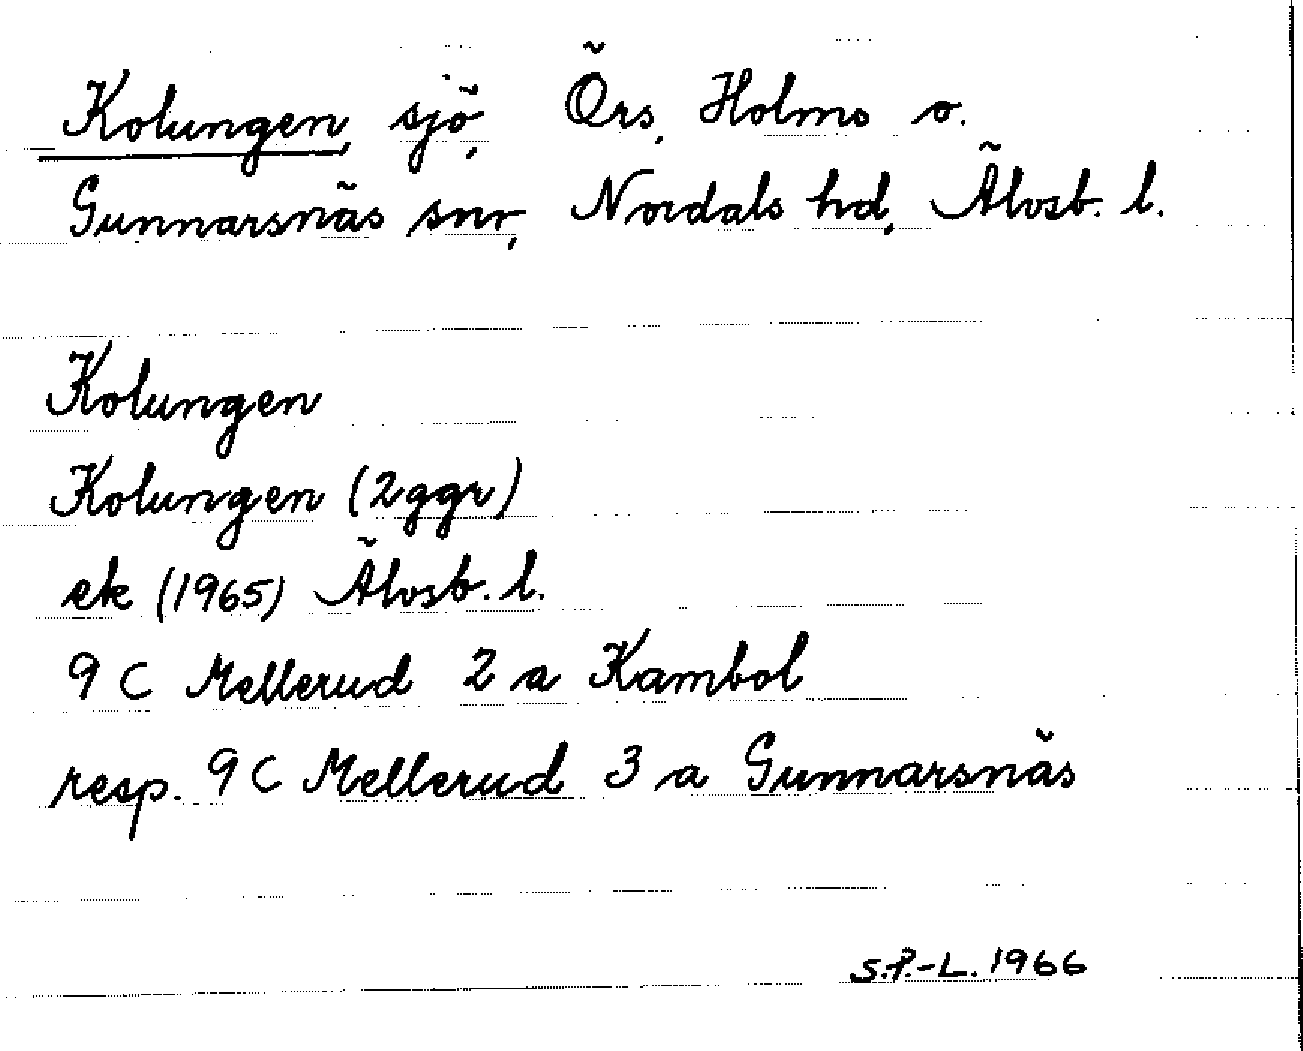 Kolungen, sjö, Örs, Holms o.
Gunnarsnäs snr, Nordals hd, Älvsb. l.
Kolungen
Kolungen (2ggr)
ek (1965) Älvsb. l.
9 C Mellerud 2 a Kambol
resp. 9 C Mellerud 3 a Gunnarsnäs
S.P.-L. 1966